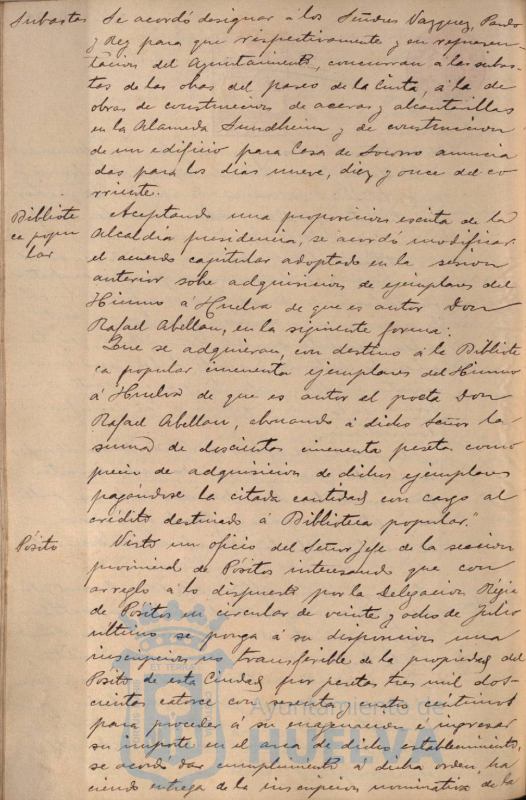 Subastas
Se acordó designar á los Señores Vazquez, Pardo
y Rey para que respectivamente y en represen-
tación del Ayuntamiento, concurran á las subas-
tas de las obras del paseo de la Cinta, á la de
obras de construccion de aceras y alcantarillas
en la Alameda Sundheim y de construccion
de un edificio para Casa de Socorro anuncia
das para los dias nueve, diez y once del co-
rriente.
Bibliote
ca popu
lar
Aceptando una proposicion escrita de la
Alcaldia presidencia, se acordó modificar
el acuerdo capitular adoptado en la sesion
anterior sobre adquisicion de ejemplares del
Himno á Huelva de que es autor Don
Rafael Abellan, en la siguiente forma:
"Que se adquieran, con destino á la Bibliote
ca popular cincuenta ejemplares del Himno
á Huelva de que es autor el poeta Don
Rafael Abellan, abonando á dicho Señor la
suma de doscientas cincuenta pesetas como
precio de adquisicion de dichos ejemplares
pagándose la citada cantidad con cargo al
crédito destinado á Biblioteca popular."
Pósito
Visto un oficio del Señor Jefe de la seccion
provincial de Pósitos interesando que con
arreglo á lo dispuesto por la Delegacion Régia
de Pósitos en circular de veinte y ocho de Julio
ultimo se ponga á su disposicion una
inscripcion no transferible de la propiedad del
Posito de esta Ciudad por pesetas tres mil dos-
cientas catorce con sesenta y cuatro centimos
para proceder á su enagenacion é ingresar
su importe en el arca de dicho establecimiento,
se acordó dar cumplimiento á dicha orden, ha
ciendo entrega de la inscripcion nominativa de la
Ayuntamiento de
HUELVA